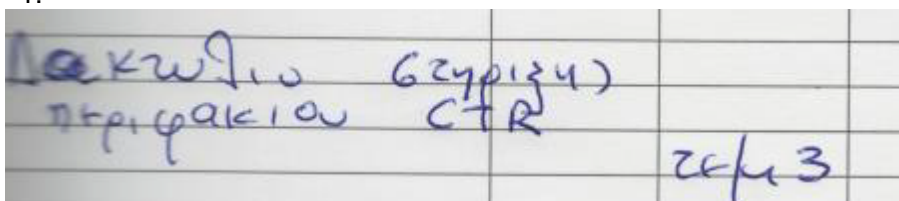 Δακτυλιο στηριξης
περιφακιου CTR
τεμ 3